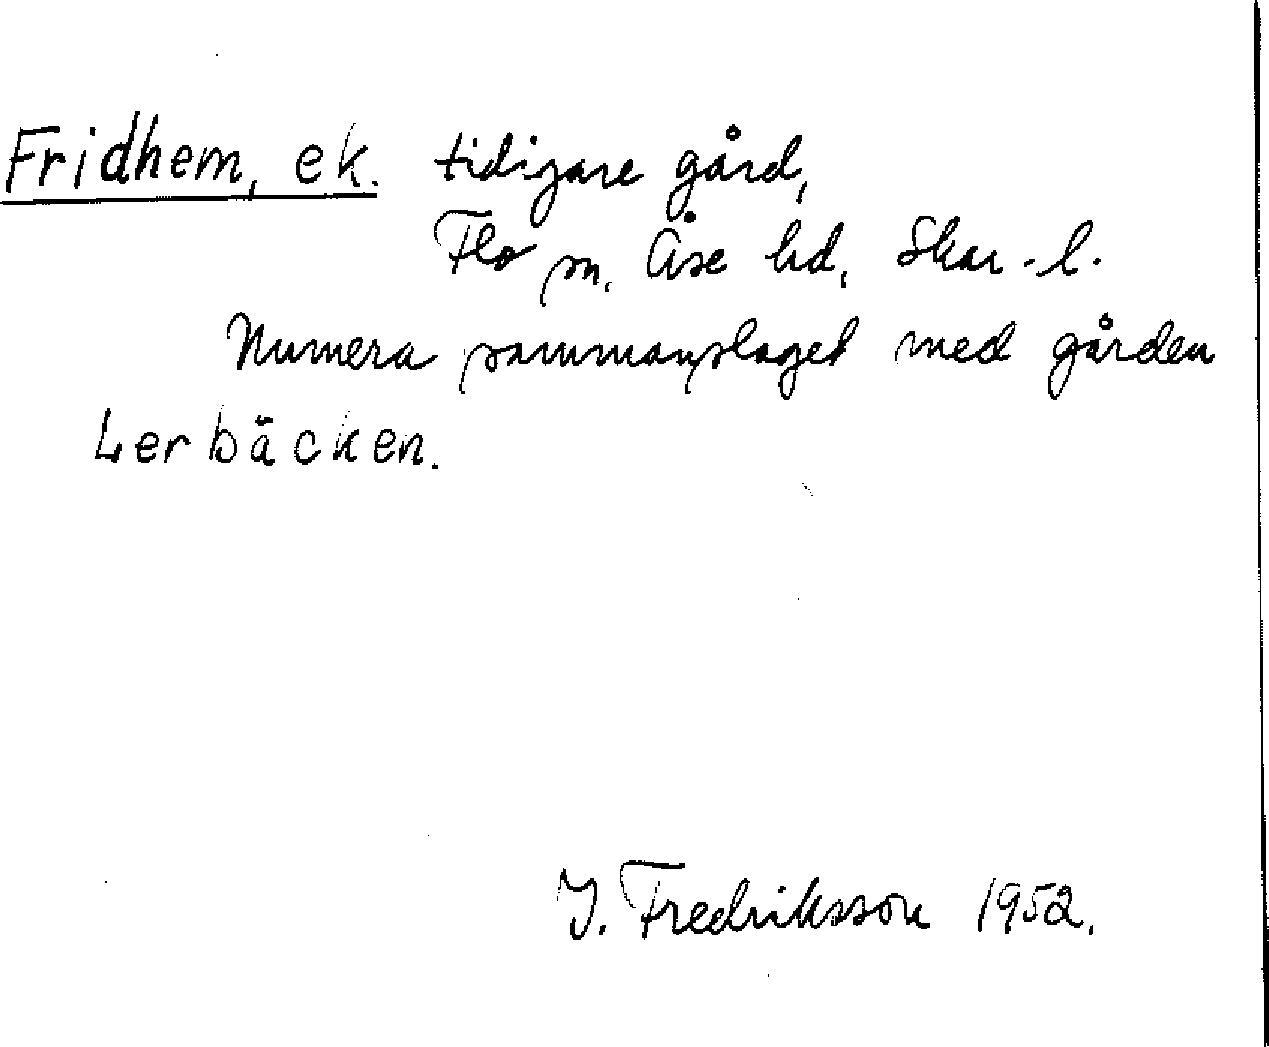 Fridhem, ek. tidigare gård,
Flo sn. Åse hd, Skar.-l.
Numera sammanslaget med gården
Lerbäcken.
I. Fredriksson 1952.